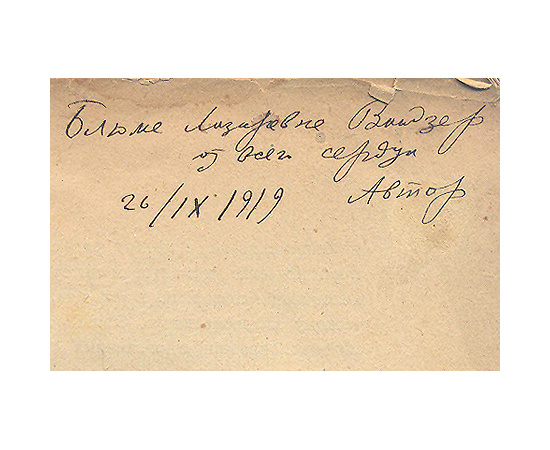 Блюме Лазаревне Вындзер
от всего сердца
26/IX 1919 Автор